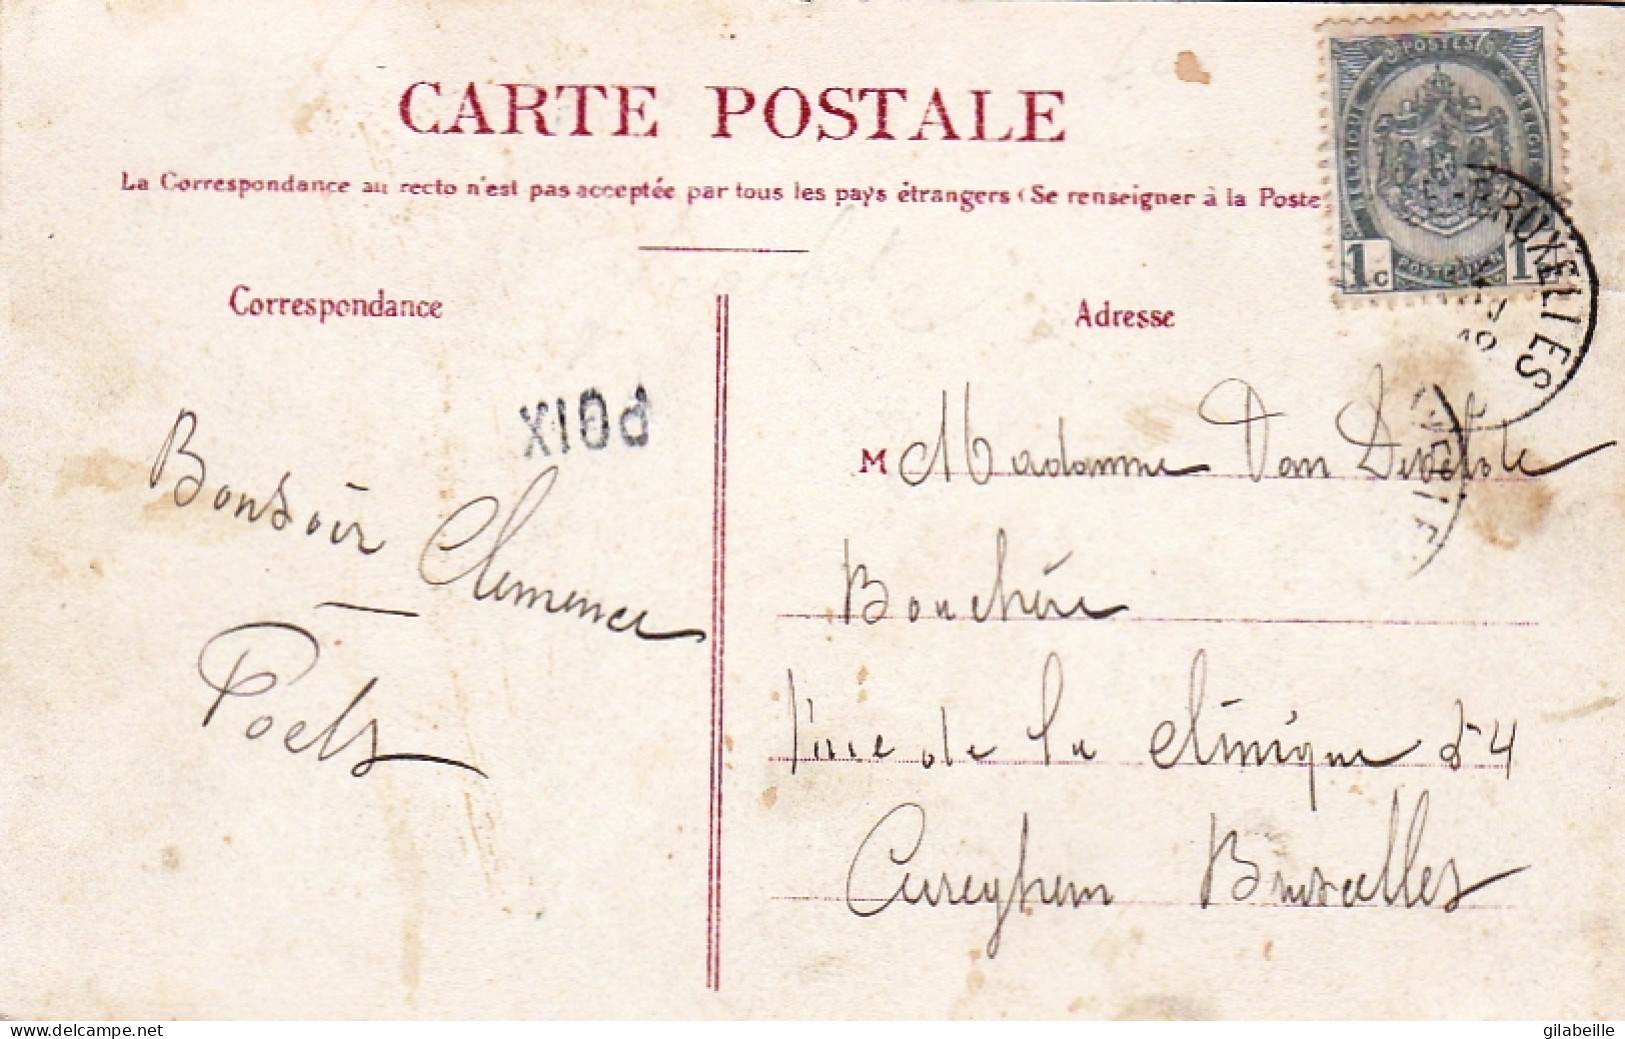 CARTE POSTALE
La Correspondance au recto n'est pas acceptée par tous les pays étrangers (Se renseigner à la Poste
POSTES
BELGIQUE
BELGIE
1c
1
BRUXELLES
Correspondance
Adresse
POIX
Bonsoir Clemence
Poels
M Madamme Van
Bouchérie
rue de la clinique 54
Cureghem Bruxelles
delcampe.net
gilabeille